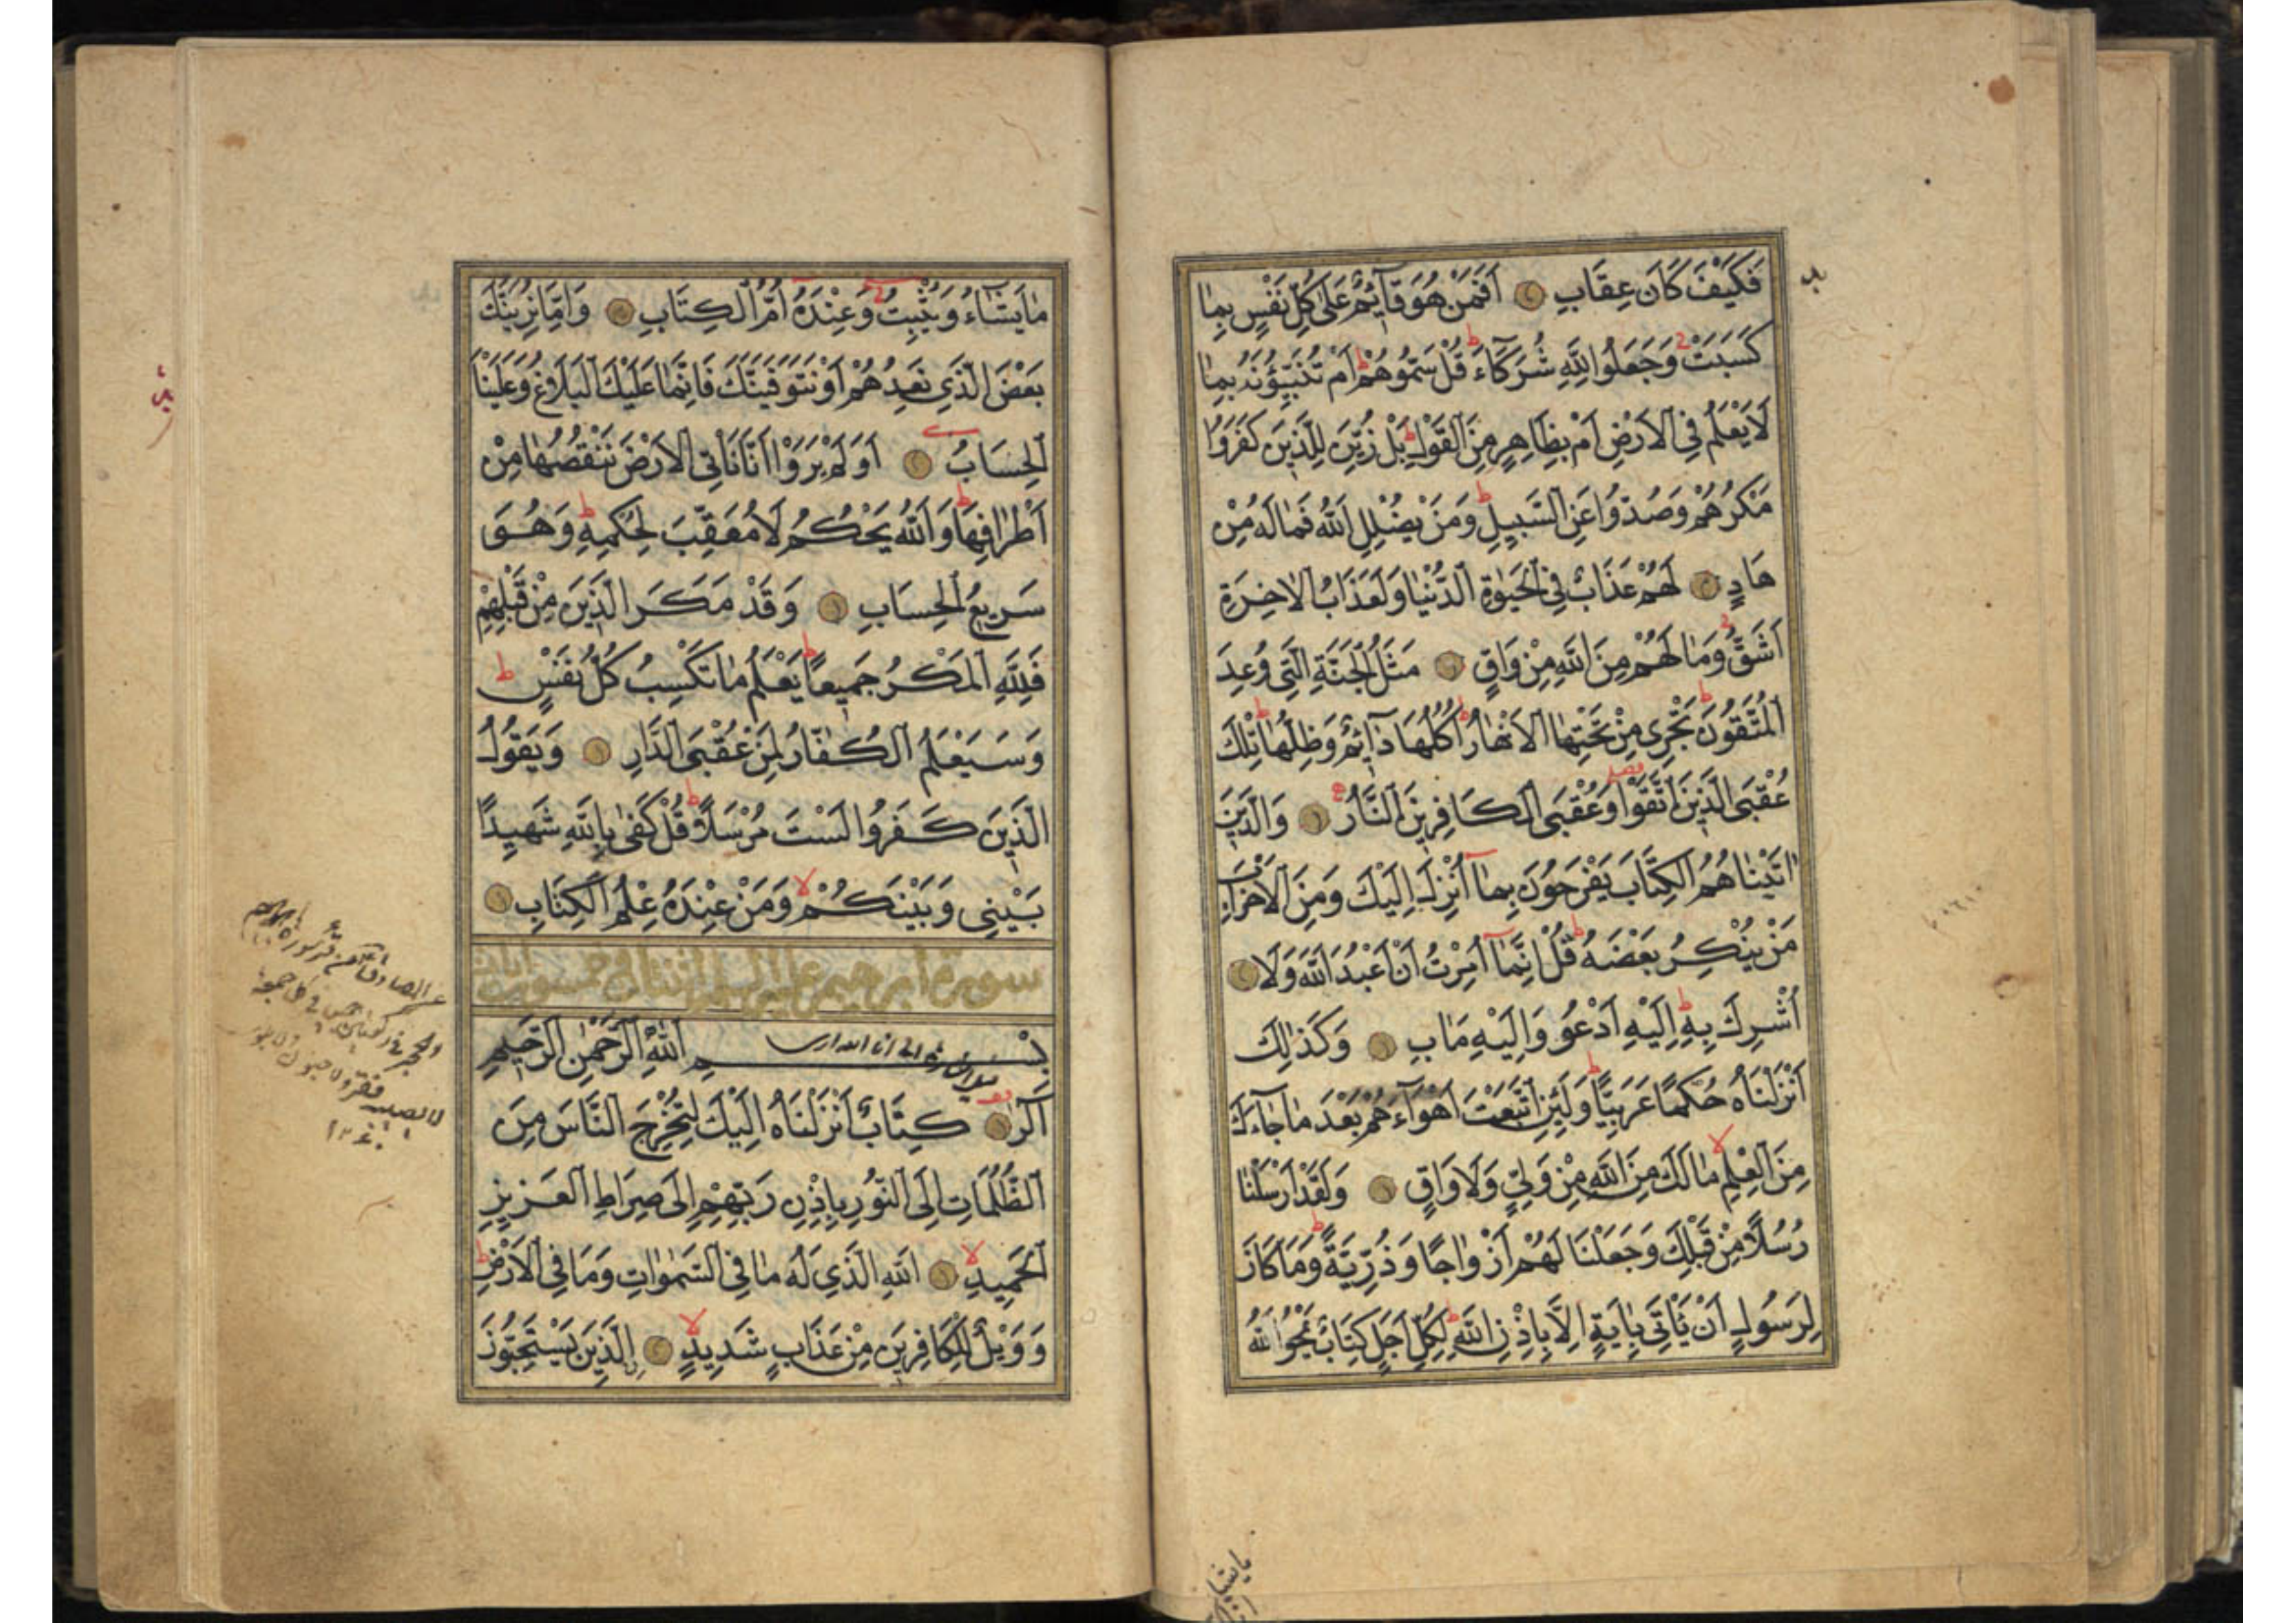 فَكَيْفَ كَانَ عِقَابِ أَفَمَنْ هُوَ قَآئِمٌ عَلَىٰ كُلِّ نَفْسٍ بِمَا
كَسَبَتْ وَجَعَلُوا لِلّٰهِ شُرَكَآءَ قُلْ سَمُّوهُمْ أَمْ تُنَبِّؤُنَهُ بِمَا
لَا يَعْلَمُ فِي الْاَرْضِ اَمْ بِظَاهِرٍ مِنَ الْقَوْلِ بَلْ زُيِّنَ لِلَّذِينَ كَفَرُوا
مَكْرُهُمْ وَصُدُّوا عَنِ السَّبِيلِ وَمَنْ يُضْلِلِ اللّٰهُ فَمَا لَهُ مِنْ
هَادٍ لَهُمْ عَذَابٌ فِي الْحَيٰوةِ الدُّنْيَا وَلَعَذَابُ الْاٰخِرَةِ
اَشَقُّ وَمَا لَهُمْ مِنَ اللّٰهِ مِنْ وَاقٍ مَثَلُ الْجَنَّةِ الَّتِي وُعِدَ
الْمُتَّقُونَ تَجْرِي مِنْ تَحْتِهَا الْاَنْهَارُ اُكُلُهَا دَآئِمٌ وَظِلُّهَا تِلْكَ
عُقْبَى الَّذِينَ اتَّقَوْا وَعُقْبَى الْكَافِرِينَ النَّارُ وَالَّذِينَ
اٰتَيْنَاهُمُ الْكِتَابَ يَفْرَحُونَ بِمَا اُنْزِلَ اِلَيْكَ وَمِنَ الْاَحْزَابِ
مَنْ يُنْكِرُ بَعْضَهُ قُلْ اِنَّمَا اُمِرْتُ اَنْ اَعْبُدَ اللّٰهَ وَلَا
اُشْرِكَ بِهِ اِلَيْهِ اَدْعُو وَاِلَيْهِ مَاٰبِ وَكَذٰلِكَ
اَنْزَلْنَاهُ حُكْمًا عَرَبِيًّا وَلَئِنِ اتَّبَعْتَ اَهْوَآءَهُمْ بَعْدَ مَا جَآءَكَ
مِنَ الْعِلْمِ مَا لَكَ مِنَ اللّٰهِ مِنْ وَلِيٍّ وَلَا وَاقٍ وَلَقَدْ اَرْسَلْنَا
رُسُلًا مِنْ قَبْلِكَ وَجَعَلْنَا لَهُمْ اَزْوَاجًا وَذُرِّيَّةً وَمَا كَانَ
لِرَسُولٍ اَنْ يَاْتِيَ بِاٰيَةٍ اِلَّا بِاِذْنِ اللّٰهِ لِكُلِّ اَجَلٍ كِتَابٌ يَمْحُوا اللّٰهُ
مَا يَشَآءُ وَيُثْبِتُ وَعِنْدَهُ اُمُّ الْكِتَابِ وَاِمَّا نُرِيَنَّكَ
بَعْضَ الَّذِي نَعِدُهُمْ اَوْ نَتَوَفَّيَنَّكَ فَاِنَّمَا عَلَيْكَ الْبَلَاغُ وَعَلَيْنَا
الْحِسَابُ اَوَلَمْ يَرَوْا اَنَّا نَاْتِي الْاَرْضَ نَنْقُصُهَا مِنْ
اَطْرَافِهَا وَاللّٰهُ يَحْكُمُ لَا مُعَقِّبَ لِحُكْمِهِ وَهُوَ
سَرِيعُ الْحِسَابِ وَقَدْ مَكَرَ الَّذِينَ مِنْ قَبْلِهِمْ
فَلِلّٰهِ الْمَكْرُ جَمِيعًا يَعْلَمُ مَا تَكْسِبُ كُلُّ نَفْسٍ
وَسَيَعْلَمُ الْكُفَّارُ لِمَنْ عُقْبَى الدَّارِ وَيَقُولُ
الَّذِينَ كَفَرُوا لَسْتَ مُرْسَلًا قُلْ كَفٰى بِاللّٰهِ شَهِيدًا
بَيْنِي وَبَيْنَكُمْ وَمَنْ عِنْدَهُ عِلْمُ الْكِتَابِ
سورة ابرهيم عليه السلم اثنتان وخمسون ايات
بِسْمِ اللّٰهِ الرَّحْمٰنِ الرَّحِيمِ
الٓرٰ كِتَابٌ اَنْزَلْنَاهُ اِلَيْكَ لِتُخْرِجَ النَّاسَ مِنَ
الظُّلُمَاتِ اِلَى النُّورِ بِاِذْنِ رَبِّهِمْ اِلٰى صِرَاطِ الْعَزِيزِ
الْحَمِيدِ اللّٰهِ الَّذِي لَهُ مَا فِي السَّمٰوَاتِ وَمَا فِي الْاَرْضِ
وَوَيْلٌ لِلْكَافِرِينَ مِنْ عَذَابٍ شَدِيدٍ الَّذِينَ يَسْتَحِبُّونَ